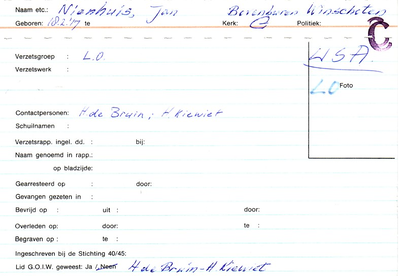 Naam etc.: Nienhuis, Jan Winschoten
Geboren: te Kerk: G Politiek: C
Verzetsgroep : L.O. WSA.
Verzetswerk :
LO Foto
Contactpersonen: H de Bruin; H. Kiewiet
Schuilnaam :
Verzetsrapp. ingel. dd. : bij:
Naam genoemd in rapp.:
op bladzijde:
Gearresteerd op : door:
Gevangen gezeten in :
Bevrijd op : uit : door:
Overleden op : door: te :
Begraven op : te :
Ingeschreven bij de Stichting 40/45:
Lid G.O.I.W. geweest: Ja / Neen H de Bruin - H Kiewiet